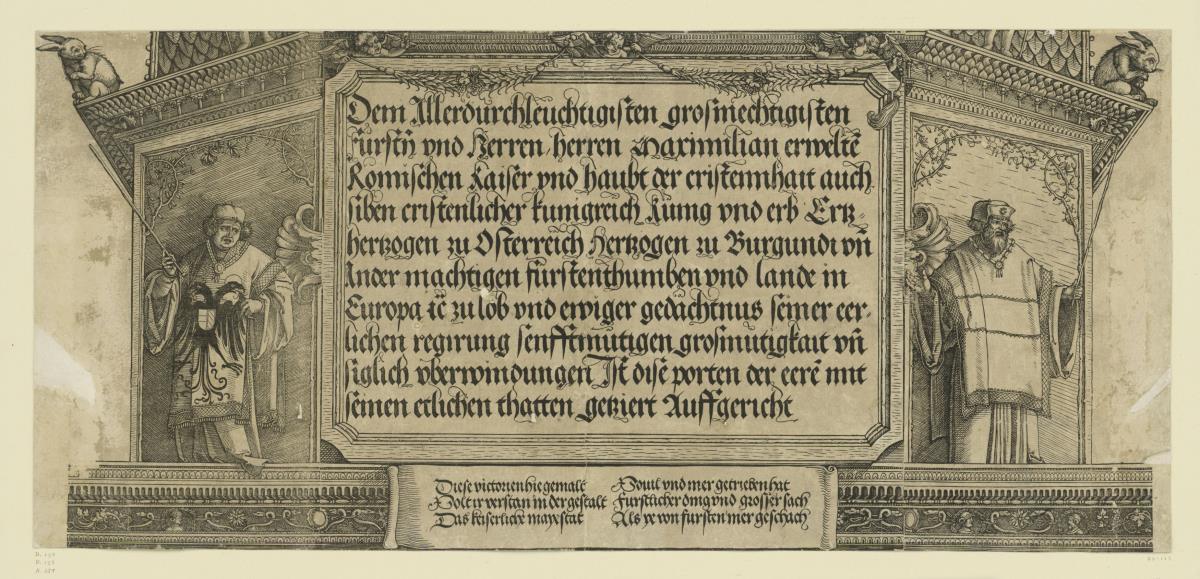 Dem Allerdurchleuchtigisten grosmechtigisten
fürstn̄ vnd Herren herren Maximilian erweltē
Romischen Kaiser vnd haubt der cristennhait auch
siben cristenlicher kunigreich Kunig vnd erb Ertz-
hertzogen zu Osterreich Hertzogen zu Burgundi vn̄
Ander machtigen fürstenthumben vnd lande in
Europa ꝛc̄ zu lob vnd ewiger gedächtnus seiner eer-
lichen regirung senfftmütigen grosmütigkait vn̄
siglich vberwindungen Ist disē porten der eerē mit
seinen etlichen thatten getziert Auffgericht
Diese victorien hie gemalt
Wolt ir verstan in der gestalt
Das keiserliche mayestat
Souil vnd mer getrieben hat
Furstlicher ding vnd grosser sach
Als ye von fursten mer geschach